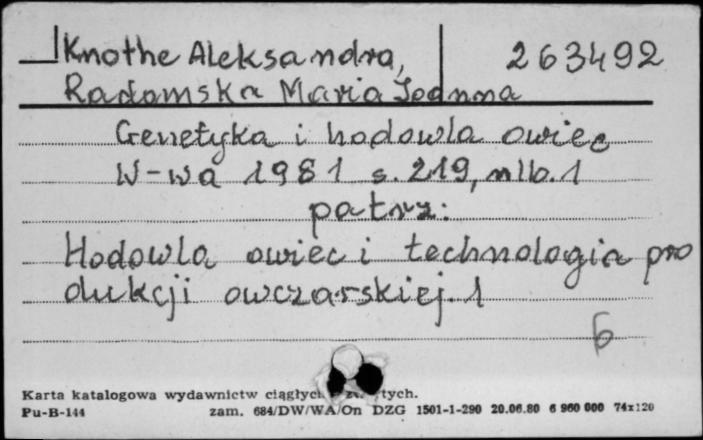 Knothe Aleksandra, 263492
Radomska Maria Joanna
Genetyka i hodowla owiec
W-wa 1981 s. 219, nlb. 1
patrz:
Hodowla owiec i technologia pro
dukcji owczarskiej. 1
6
Karta katalogowa wydawnictw ciągłych i zwartych.
Pu-B-144 zam. 684/DW/WA/On DZG 1501-1-290 20.06.80 6 960 000 74x120